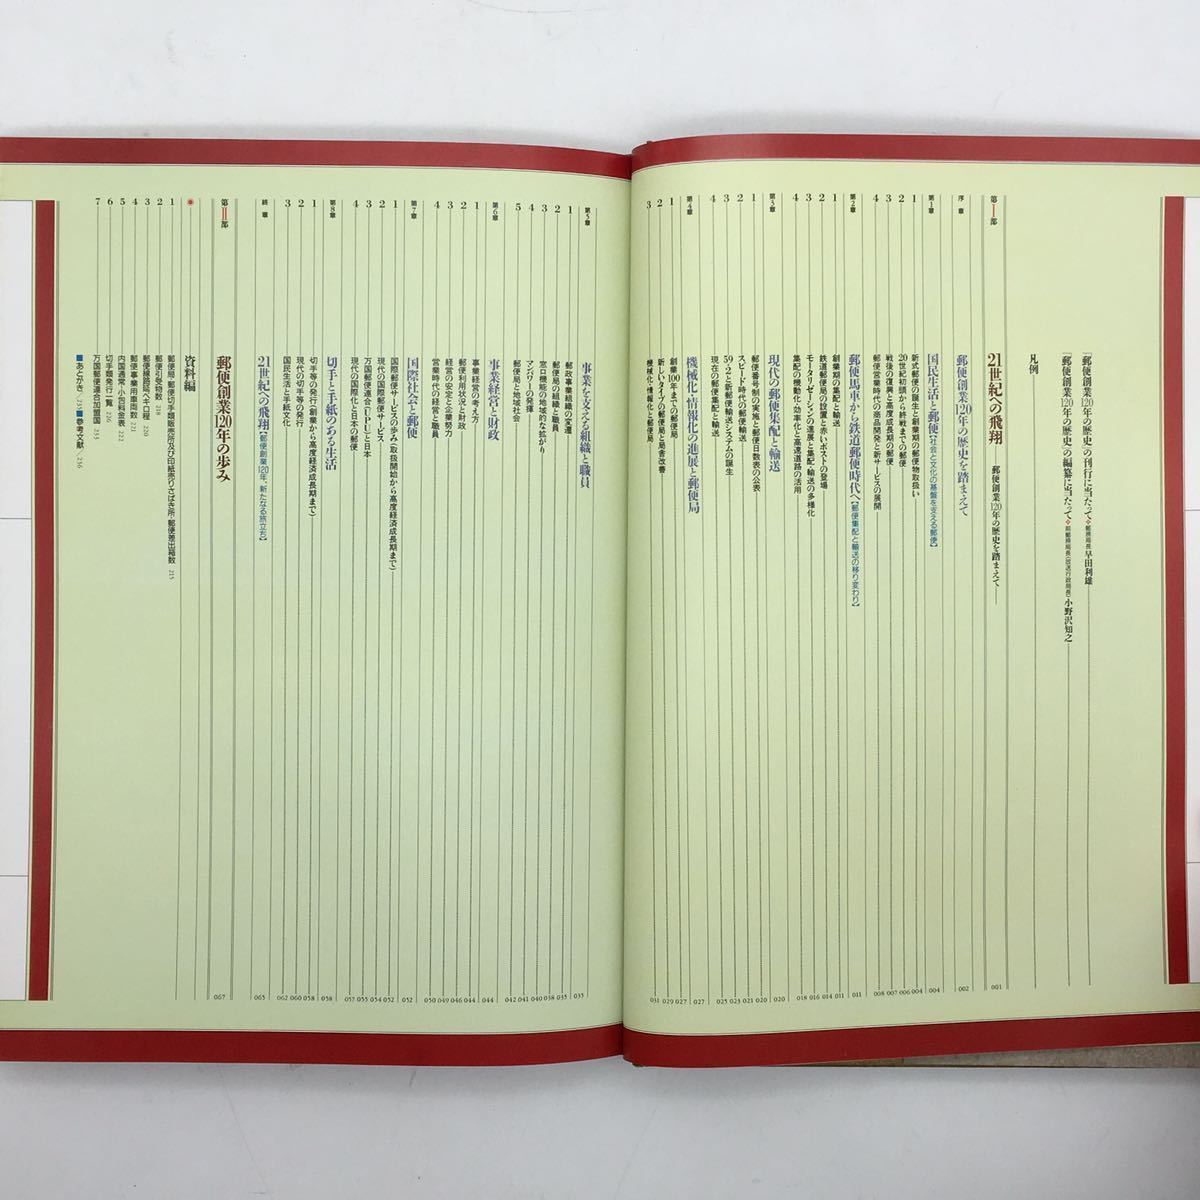 「郵便創業120年の歴史」の刊行に当たって❖郵務局長 早田利雄
「郵便創業120年の歴史」の編纂に当たって❖前郵務局長(放送行政局長)・小野沢知之
凡例
第I部 21世紀への飛翔——郵便創業120年の歴史を踏まえて 001
序章 郵便創業120年の歴史を踏まえて 002
第1章 国民生活と郵便【社会と文化の基盤を支える郵便】 004
1 新式郵便の誕生と創業期の郵便物取扱い 004
2 20世紀初頭から終戦までの郵便 006
3 戦後の復興と高度成長期の郵便 007
4 郵便営業時代の商品開発と新サービスの展開 008
第2章 郵便馬車から鉄道郵便時代へ【郵便集配と輸送の移り変わり】 011
1 創業期の集配と輸送 011
2 鉄道郵便局の設置と赤いポストの登場 014
3 モータリゼーションの進展と集配・輸送の多様化 016
4 集配の機動化・効率化と高速道路の活用 018
第3章 現代の郵便集配と輸送 020
1 郵便番号制の実施と郵便日数表の公表 020
2 スピード時代の郵便輸送 021
3 59・2と新郵便輸送システムの誕生 023
4 現在の郵便集配と輸送 025
第4章 機械化・情報化の進展と郵便局 027
1 創業100年までの郵便局 027
2 新しいタイプの郵便局と局舎改善 029
3 機械化・情報化と郵便局 031
第5章 事業を支える組織と職員 035
1 郵政事業組織の変遷 035
2 郵便局の組織と職員 038
3 窓口機能の地域的な拡がり 040
4 マンパワーの発揮 041
5 郵便局と地域社会 042
第6章 事業経営と財政 044
1 事業経営の考え方 044
2 郵便利用状況と財政 046
3 経営の安定と企業努力 049
4 営業時代の経営と職員 050
第7章 国際社会と郵便 052
1 国際郵便サービスの歩み(取扱開始から高度経済成長期まで) 052
2 現代の国際郵便サービス 054
3 万国郵便連合(UPU)と日本 055
4 現代の国際化と日本の郵便 057
第8章 切手と手紙のある生活 058
1 切手等の発行(創業から高度経済成長期まで) 058
2 現代の切手等の発行 060
3 国民生活と手紙文化 062
終章 21世紀への飛翔【郵便創業120年、新たなる旅立ち】 065
第II部 郵便創業120年の歩み 067
資料編
1 郵便局・郵便切手類販売所及び印紙売りさばき所・郵便差出箱数 215
2 郵便引受物数 218
3 郵便線路延べキロ程 220
4 郵便事業用車両数 221
5 内国通常・小包料金表 222
6 切手類発行一覧 226
7 万国郵便連合加盟国 233
■あとがき/235 ■参考文献/236